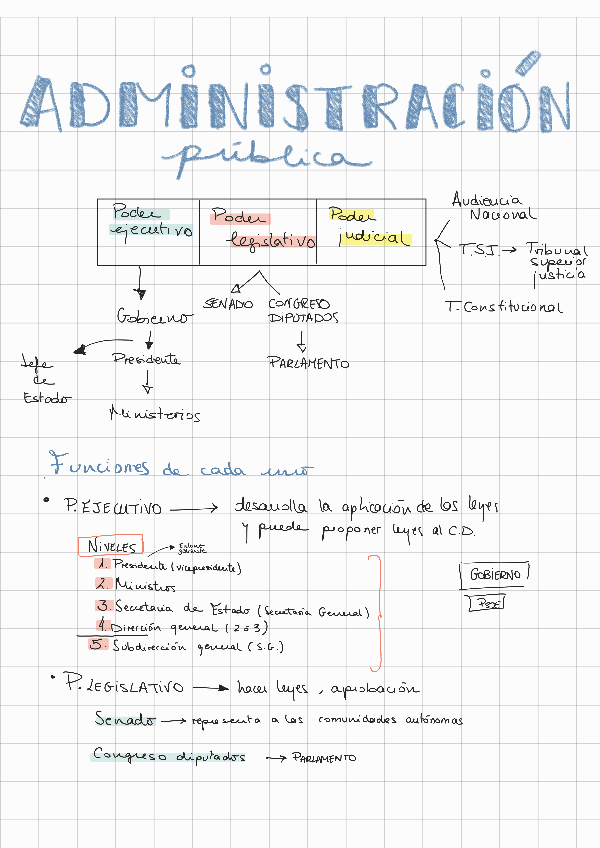 ADMINISTRACIÓN
pública
Poder
ejecutivo
Poder
legislativo
Poder
judicial
Audiencia
Nacional
T.S.J. → Tribunal
Superior
justicia
T. Constitucional
Gobierno
SENADO
CONGRESO
DIPUTADOS
Presidente
PARLAMENTO
Jefe
de
Estado
Ministerios
Funciones de cada uno
• P. EJECUTIVO → desarrolla la aplicación de las leyes
y puede proponer leyes al C.D.
NIVELES
1. Presidente (vicepresidente)
2. Ministros
3. Secretaria de Estado (Secretaria General)
4. Dirección general (2 o 3)
5. Subdirección general (S.G.)
GOBIERNO
• P. LEGISLATIVO → hacer leyes, aprobación
Senado → representa a las comunidades autónomas
Congreso diputados → PARLAMENTO